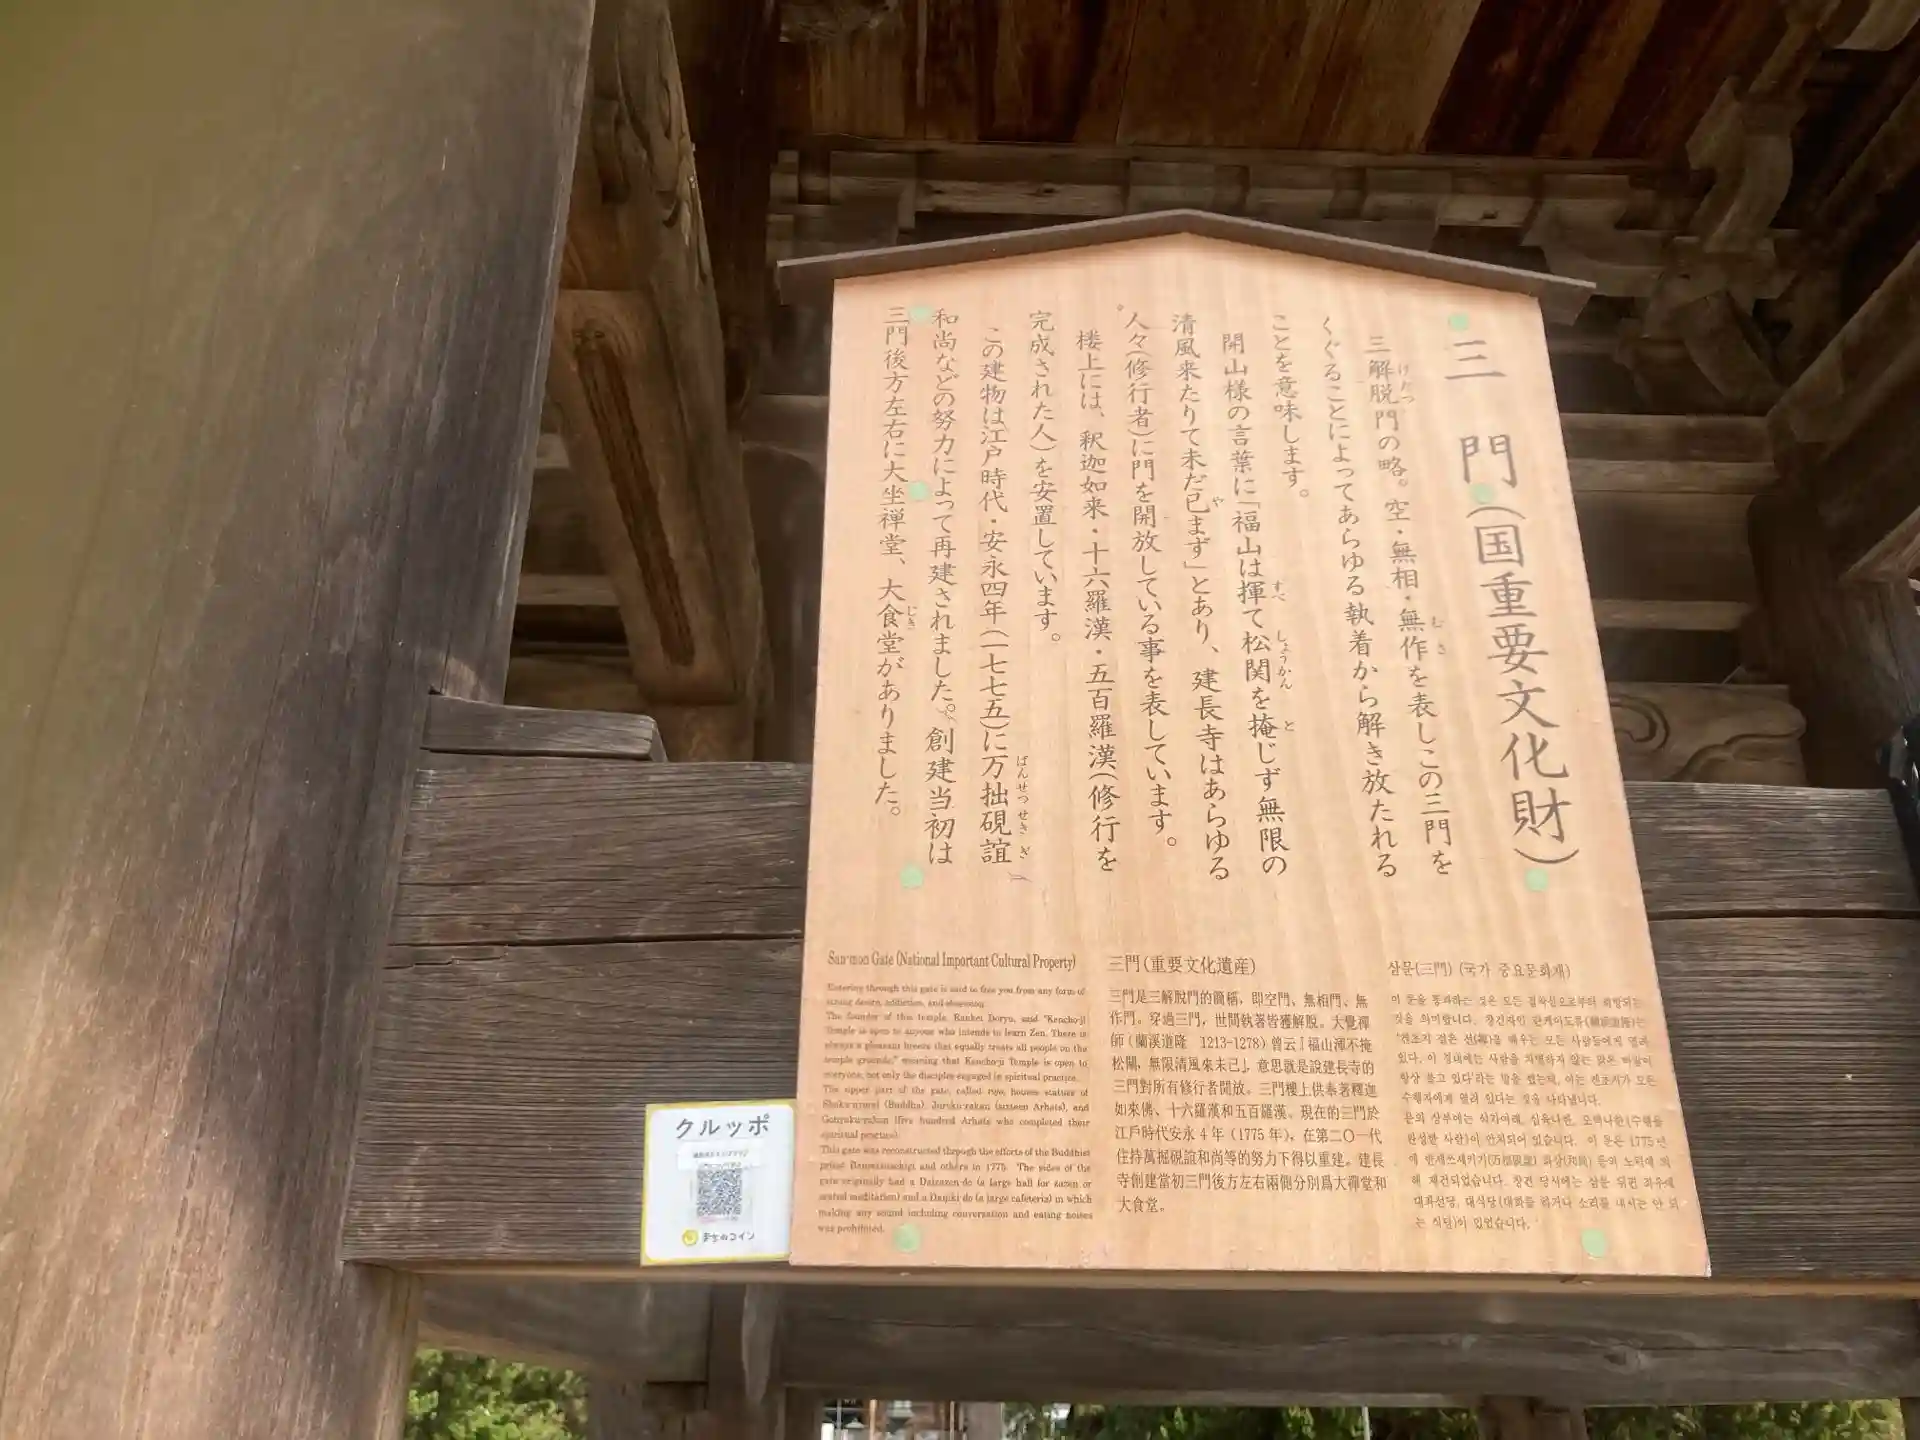 三 門(国重要文化財)
三解脱門の略。空・無相・無作を表しこの三門を
くぐることによってあらゆる執着から解き放たれる
ことを意味します。
開山様の言葉に「福山は揮て松関を掩じず無限の
清風来たりて未だ已まず」とあり、建長寺はあらゆる
人々(修行者)に門を開放している事を表しています。
楼上には、釈迦如来・十六羅漢・五百羅漢(修行を
完成された人)を安置しています。
この建物は江戸時代・安永四年(一七七五)に万拙碩誼
和尚などの努力によって再建されました。創建当初は
三門後方左右に大坐禅堂、大食堂がありました。
けだつ
むさ
すべ
しょうかん
と
や
ばんせつ せき ぎ
じき
San-mon Gate (National Important Cultural Property)
Entering through this gate is said to free you from any form of
strong desire, addiction, and obsession.
The founder of this temple, Rankei Doryu, said "Kencho-ji
Temple is open to anyone who intends to learn Zen. There is
always a pleasant breeze that equally treats all people on the
temple grounds," meaning that Kencho-ji Temple is open to
everyone, not only the disciples engaged in spiritual practice.
The upper part of the gate, called rojo, houses statues of
Shaka-nyorai (Buddha), Juroku-rakan (sixteen Arhats), and
Gohyaku-rakan (five hundred Arhats who completed their
spiritual practice).
This gate was reconstructed through the efforts of the Buddhist
priest Bansetsusekigi and others in 1775. The sides of the
gate originally had a Daizazen-do (a large hall for zazen or
seated meditation) and a Daijiki-do (a large cafeteria) in which
making any sound including conversation and eating noises
was prohibited.
三門(重要文化遺産)
三門是三解脫門的簡稱，即空門、無相門、無
作門。穿過三門，世間執著皆獲解脫。大覺禪
師（蘭溪道隆 1213-1278）曾云『福山渾不掩
松關，無限清風來未已』，意思就是說建長寺的
三門對所有修行者開放。三門樓上供奉著釋迦
如來佛、十六羅漢和五百羅漢。現在的三門於
江戶時代安永 4 年（1775 年），在第二〇一代
住持萬拙碩誼和尚等的努力下得以重建。建長
寺創建當初三門後方左右兩側分別爲大禪堂和
大食堂。
삼문(三門) (국가 중요문화재)
이 문을 통과하는 것은 모든 집착심으로부터 해방되는
것을 의미합니다. 창건자인 란케이도류(蘭渓道隆)는
'켄쵸지 절은 선(禅)을 배우는 모든 사람들에게 열려
있다. 이 경내에는 사람을 차별하지 않는 맑은 바람이
항상 불고 있다'라는 말을 했는데, 이는 켄쵸지가 모든
수행자에게 열려 있다는 것을 나타냅니다.
문의 상부에는 석가여래, 십육나한, 오백나한(수행을
완성한 사람)이 안치되어 있습니다. 이 문은 1775년
에 반세쓰세키기(万拙碩誼) 화상(和尚) 등의 노력에 의
해 재건되었습니다. 창건 당시에는 삼문 뒤편 좌우에
대좌선당, 대식당(대화를 하거나 소리를 내서는 안 되
는 식당)이 있었습니다.
クルッポ
まちのコイン